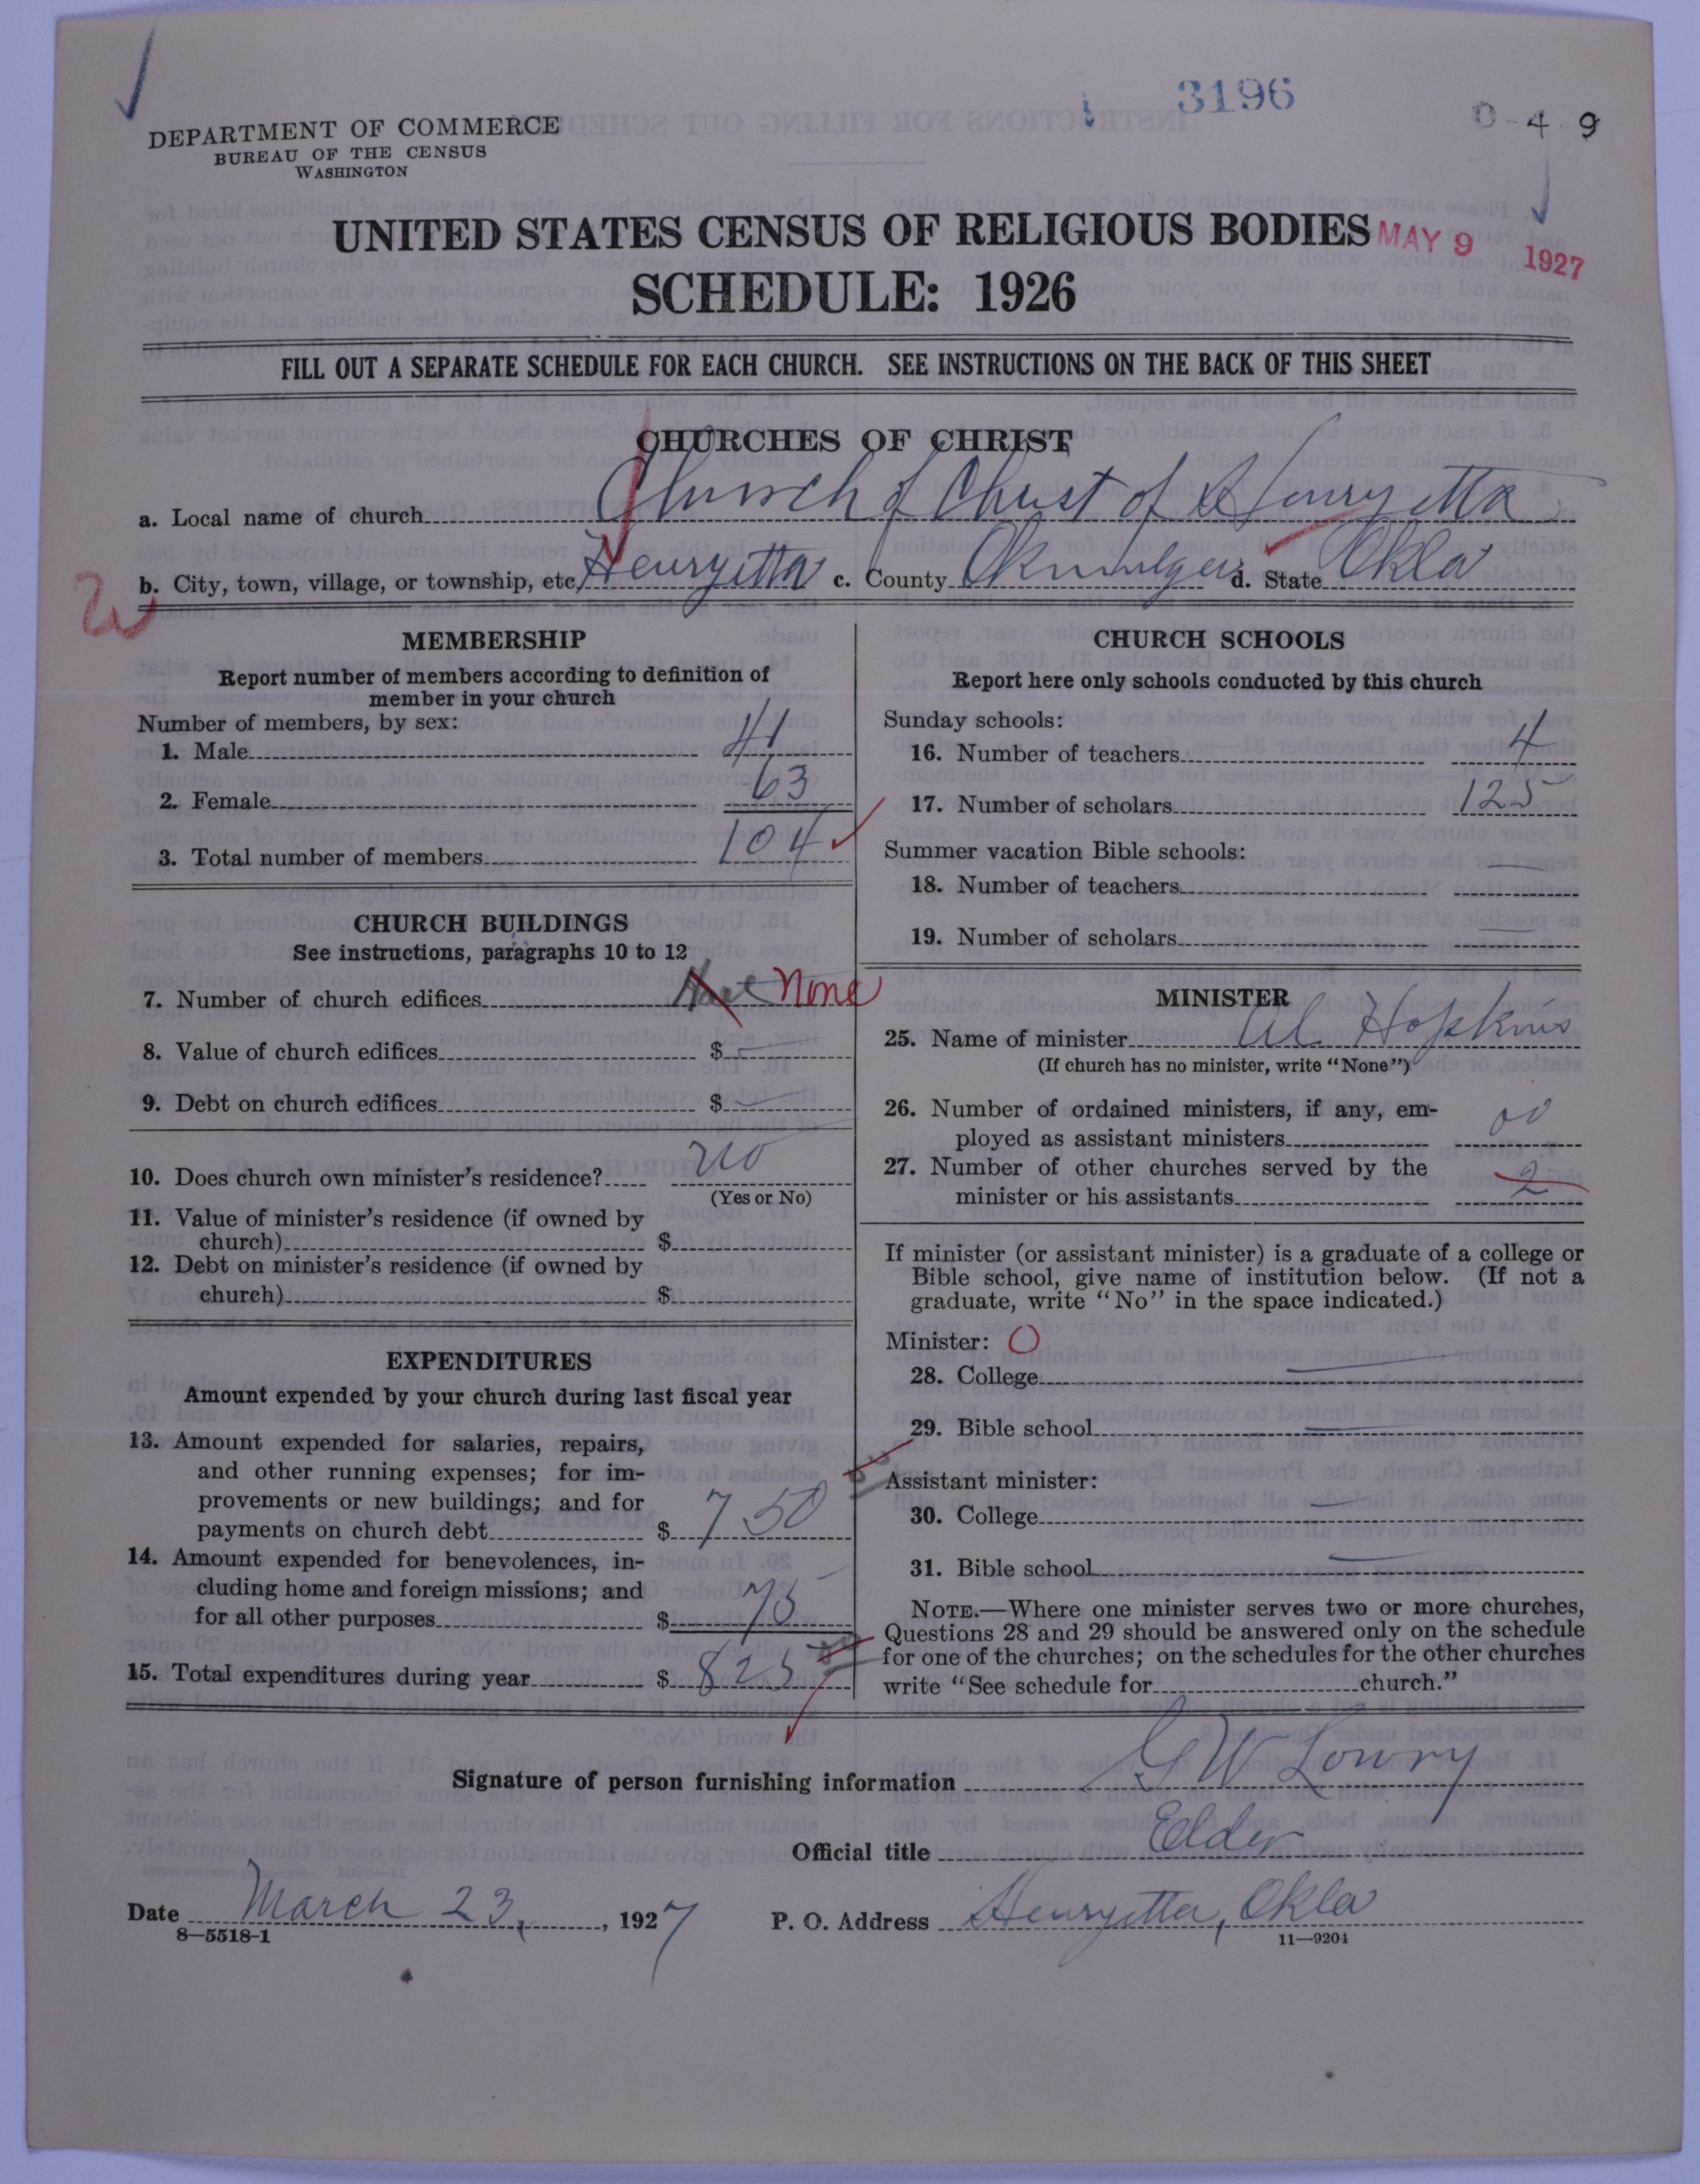 3196
0-4 9
DEPARTMENT OF COMMERCE
BUREAU OF THE CENSUS
WASHINGTON
UNITED STATES CENSUS OF RELIGIOUS BODIES
MAY 9 1927
SCHEDULE: 1926
FILL OUT A SEPARATE SCHEDULE FOR EACH CHURCH. SEE INSTRUCTIONS ON THE BACK OF THIS SHEET
CHURCHES OF CHRIST
a. Local name of church Church of Christ of Henryetta
b. City, town, village, or township, etc. Henryetta c. County Okmulgee d. State Okla
W
MEMBERSHIP
Report number of members according to definition of
member in your church
Number of members, by sex:
1. Male 41
2. Female 63
3. Total number of members 104
CHURCH BUILDINGS
See instructions, paragraphs 10 to 12
7. Number of church edifices None
8. Value of church edifices $
9. Debt on church edifices $
10. Does church own minister's residence? no
(Yes or No)
11. Value of minister's residence (if owned by
church) $
12. Debt on minister's residence (if owned by
church) $
EXPENDITURES
Amount expended by your church during last fiscal year
13. Amount expended for salaries, repairs,
and other running expenses; for im-
provements or new buildings; and for
payments on church debt $ 750
14. Amount expended for benevolences, in-
cluding home and foreign missions; and
for all other purposes $ 75
15. Total expenditures during year $ 825
CHURCH SCHOOLS
Report here only schools conducted by this church
Sunday schools:
16. Number of teachers 4
17. Number of scholars 125
Summer vacation Bible schools:
18. Number of teachers
19. Number of scholars
MINISTER
25. Name of minister Al. Hopkins
(If church has no minister, write "None")
26. Number of ordained ministers, if any, em-
ployed as assistant ministers 00
27. Number of other churches served by the
minister or his assistants 2
If minister (or assistant minister) is a graduate of a college or
Bible school, give name of institution below. (If not a
graduate, write "No" in the space indicated.)
Minister: O
28. College
29. Bible school
Assistant minister:
30. College
31. Bible school
NOTE.—Where one minister serves two or more churches,
Questions 28 and 29 should be answered only on the schedule
for one of the churches; on the schedules for the other churches
write "See schedule for church."
Signature of person furnishing information G W Lowry
Official title Elder
Date March 23, 1927 P. O. Address Henryetta, Okla
8—5518-1
11—9204